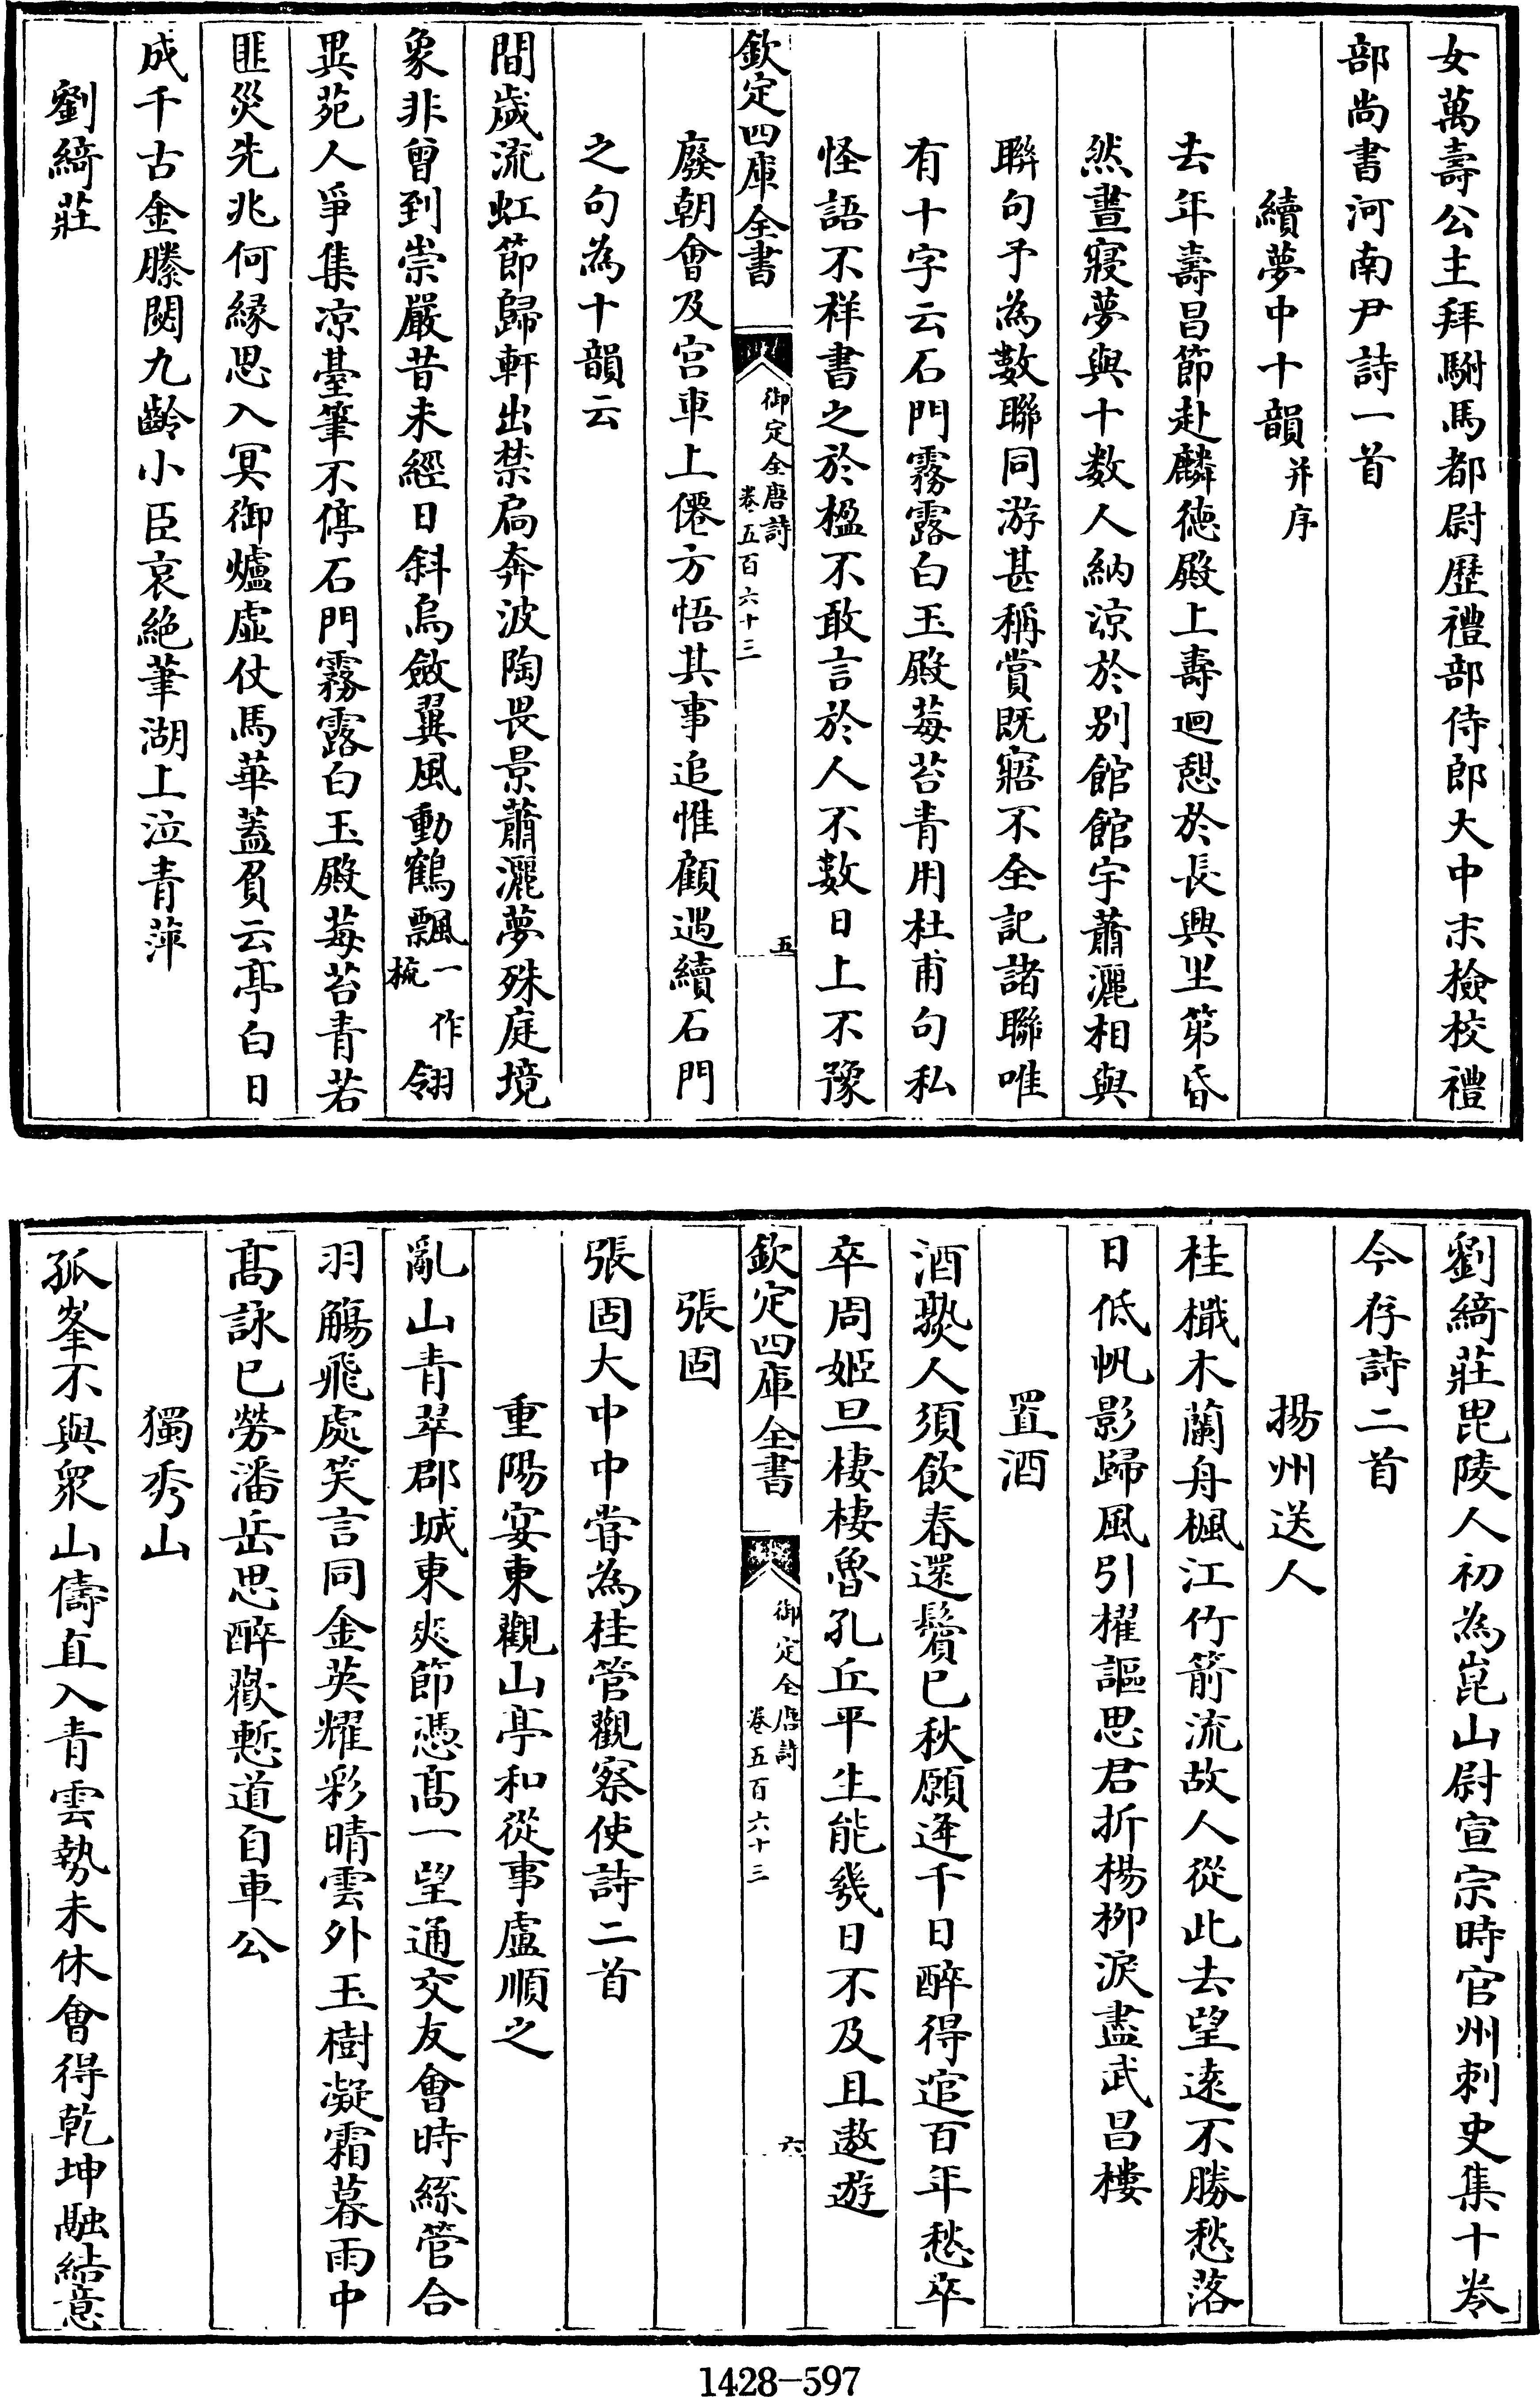 女萬壽公主拜駙馬都尉歷禮部侍郎大中末檢校禮
部尚書河南尹詩一首
續夢中十韻并序
去年壽昌節赴麟徳殿上壽迴憩於長興里第昏
然晝寢夢與十數人納涼於别館館宇蕭灑相與
聯句予為數聯同游甚稱賞既寤不全記諸聯唯
有十字云石門霧露白玉殿莓苔青用杜甫句私
怪語不祥書之於楹不敢言於人不數日上不豫
欽定四庫全書
御定全唐詩
卷五百六十三
五
廢朝會及宫車上僊方悟其事追惟顧遇續石門
之句為十韻云
間歲流虹節歸軒出禁扃奔波陶畏景蕭灑夢殊庭境
象非曾到崇嚴昔未經日斜烏斂翼風動鶴飄一作梳翎
異苑人爭集凉臺筆不停石門霧露白玉殿莓苔青若
匪災先兆何縁思入冥御爐虚仗馬華蓋負云亭白日
成千古金縢閟九齡小臣哀絶筆湖上泣青萍
劉綺莊
劉綺莊毘陵人初為崑山尉宣宗時官州刺史集十卷
今存詩二首
揚州送人
桂檝木蘭舟楓江竹箭流故人從此去望逺不勝愁落
日低帆影歸風引櫂謳思君折楊柳淚盡武昌樓
置酒
酒熟人須飲春還鬢已秋願逢千日醉得逭百年愁卒
卒周姬旦棲棲魯孔丘平生能幾日不及且遨遊
欽定四庫全書
御定全唐詩
卷五百六十三
六
張固
張固大中中嘗為桂管觀察使詩二首
重陽宴東觀山亭和從事盧順之
亂山青翠郡城東爽節憑髙一望通交友會時絲管合
羽觴飛處笑言同金英耀彩晴雲外玉樹凝霜暮雨中
髙詠已勞潘岳思醉歡慙道自車公
獨秀山
孤峯不與衆山儔直入青雲勢未休會得乾坤融結意
1428-597